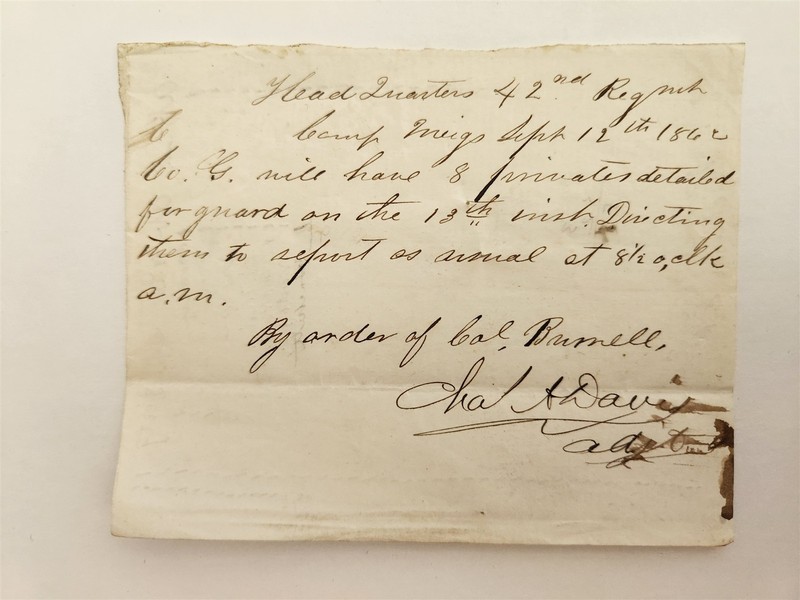 Head Quarters 42nd. Regmt
Camp Meigs Sept 12th 1862
Co. G. will have 8 privates detailed
for guard on the 13th inst. Directing
them to report as usual at 8 1/2 o,clk
a.m.
By order of Col. Burrell,
Chas A Davis
Adjt